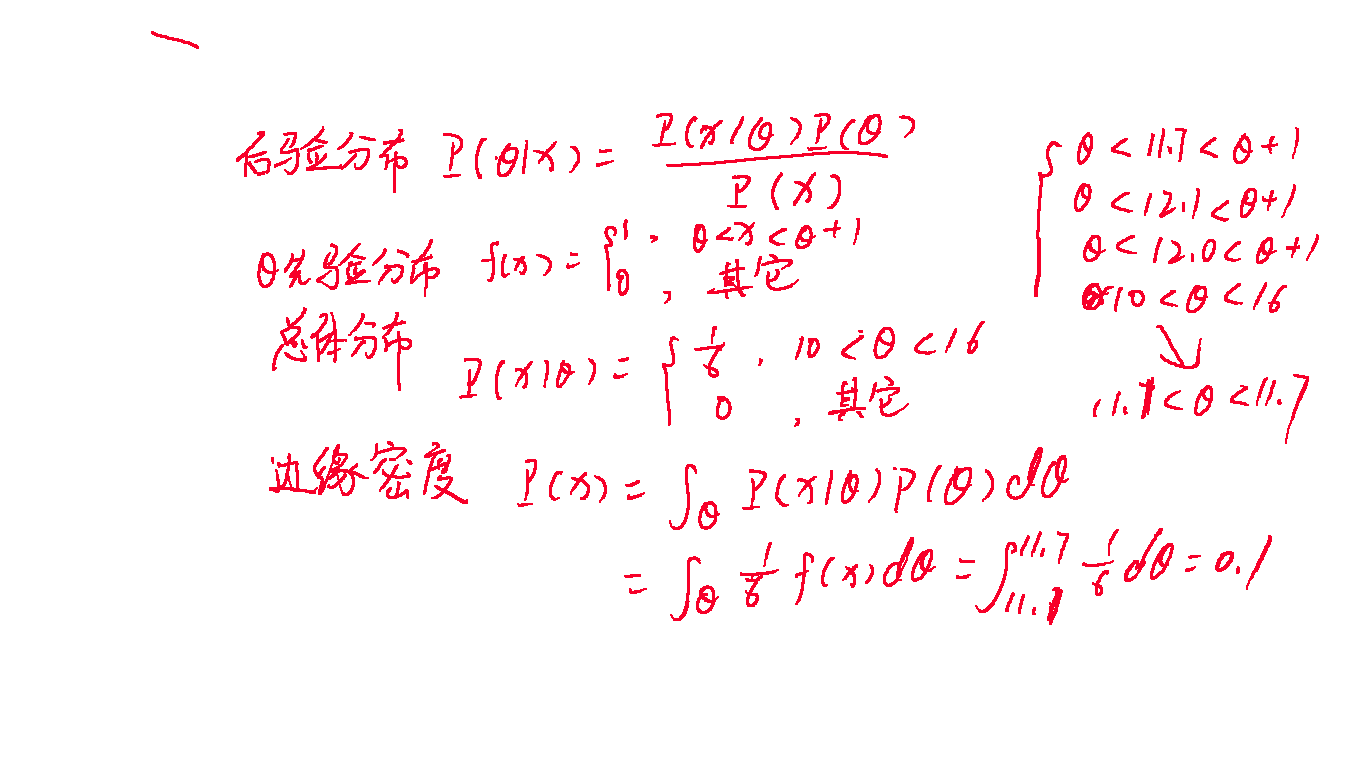 后验分布 P(θ|x) = P(x|θ)P(θ) / P(x)
θ先验分布 f(x) = { 1, θ<x<θ+1
0, 其它
总体分布 P(x|θ) = { 1/6, 10<θ<16
0, 其它
边缘密度 P(x) = ∫θ P(x|θ)P(θ)dθ
= ∫θ 1/6 f(x)dθ = ∫11.1^11.7 1/6 dθ = 0.1
{ θ<11.7<θ+1
θ<12.1<θ+1
θ<12.0<θ+1
10<θ<16
↓
11.1<θ<11.7